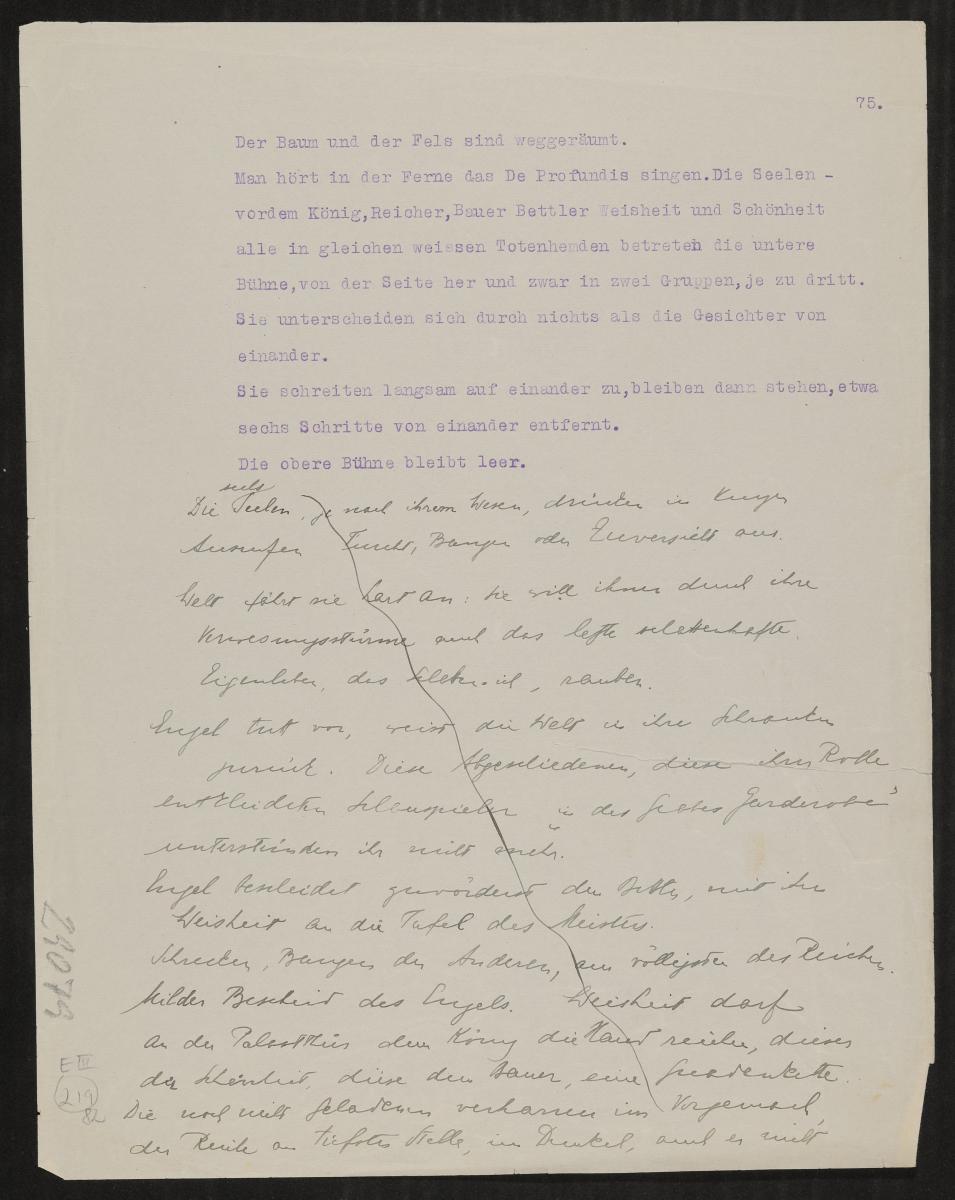 75.
Der Baum und der Fels sind weggeräumt.
Man hört in der Ferne das De Profundis singen.Die Seelen -
vordem König,Reicher,Bauer Bettler Weisheit und Schönheit
alle in gleichen weissen Totenhemden betreten die untere
Bühne,von der Seite her und zwar in zwei Gruppen,je zu dritt.
Sie unterscheiden sich durch nichts als die Gesichter von
einander.
Sie schreiten langsam auf einander zu,bleiben dann stehen,etwa
sechs Schritte von einander entfernt.
Die obere Bühne bleibt leer.
sechs
Die Seelen, je nach ihrem Wesen, drücken in kurzen
Ausrufen Furcht, Bangen oder Zuversicht aus.
Welt fährt sie hart an: sie will ihnen durch ihre
Verwesungsstürme auch das letzte schattenhafte
Eigenleben, das Ich, rauben.
Engel tritt vor, weist die Welt in ihre Schranken
zurück. Diese Abgeschiedenen, diese ihrer Rolle
entkleideten Schauspieler in des Garderobe
unterstünden ihr nicht mehr.
Engel bescheidet zuvörderst den Bettler, mit der
Weisheit an die Tafel des Meisters.
Schrecken, Bangen der Anderen, am völligsten des Reichen.
Milder Bescheid des Engels. Weisheit darf
an der Palasttür dem König die Hand reichen, dieser
der Schönheit, diese dem Bauer, eine Gnadenkette.
Die noch nicht Geladenen verharren im Vorgemach,
der Reiche an tiefster Stelle, im Dunkel, auch er nicht
E III
219
82